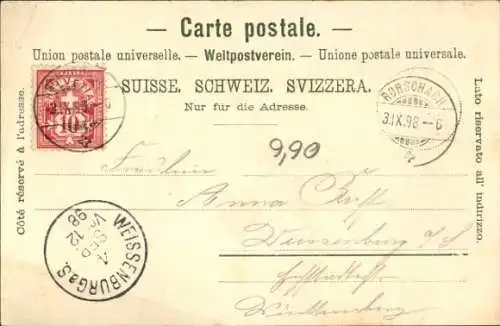 — Carte postale. —
Union postale universelle. — Weltpostverein. — Unione postale universale.
SUISSE. SCHWEIZ. SVIZZERA.
Nur für die Adresse.
Côté réservé à l'adresse.
Lato riservato all' indirizzo.
10
RORSCHACH
3.IX.98-6
9,90
Fräulein
Anna
WEISSENBURG a S.
SEP
12
98
Württemberg